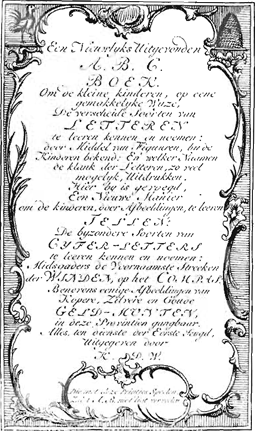 Een Nieuwlyks Uitgevonden
A. B. C.
BOEK.
Om de kleine kinderen, op eene
gemakkelyke Wyze,
De verscheide Soorten van
LETTEREN
te leeren kennen, en noemen;
door Middel van Figuuren, by de
Kinderen bekend: En welker Naamen
de klank der Letteren, zo veel
mogelyk, Uitdrukken.
Hier by is gevoegd,
Een Nieuwe Manier
om de kinderen, door Afbeeldingen, te leeren
TELLEN.
De byzondere Soorten van
CYFER-LETTERS
te leeren kennen en noemen:
Mitsgaders de Voornaamste Streeken
der WINDEN, op het COMPAS,
Benevens eenige Afbeeldingen van
Kopere, Zilvere en Goude
GELD-MUNTEN,
in deze Provintien gangbaar.
Alles, ten dienste der Eerste Jeugd,
Uitgegeven door
K. D. W.